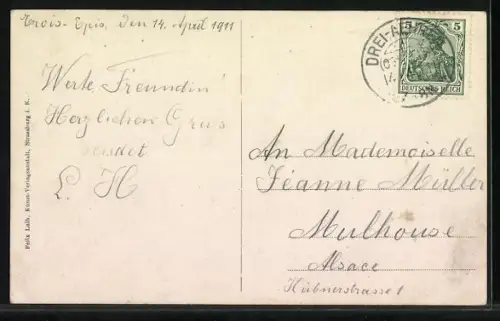 Trois-Epis, den 14. April 1911
Werte Freundin!
Herzlichen Gruss
sendet
L. H
An Mademoiselle
Jeanne Müller
Mulhouse
Alsace
Hübnerstrasse 1
DREI-
5
DEUTSCHES REICH
Felix Luib, Kunst-Verlagsanstalt, Strassburg i. E.